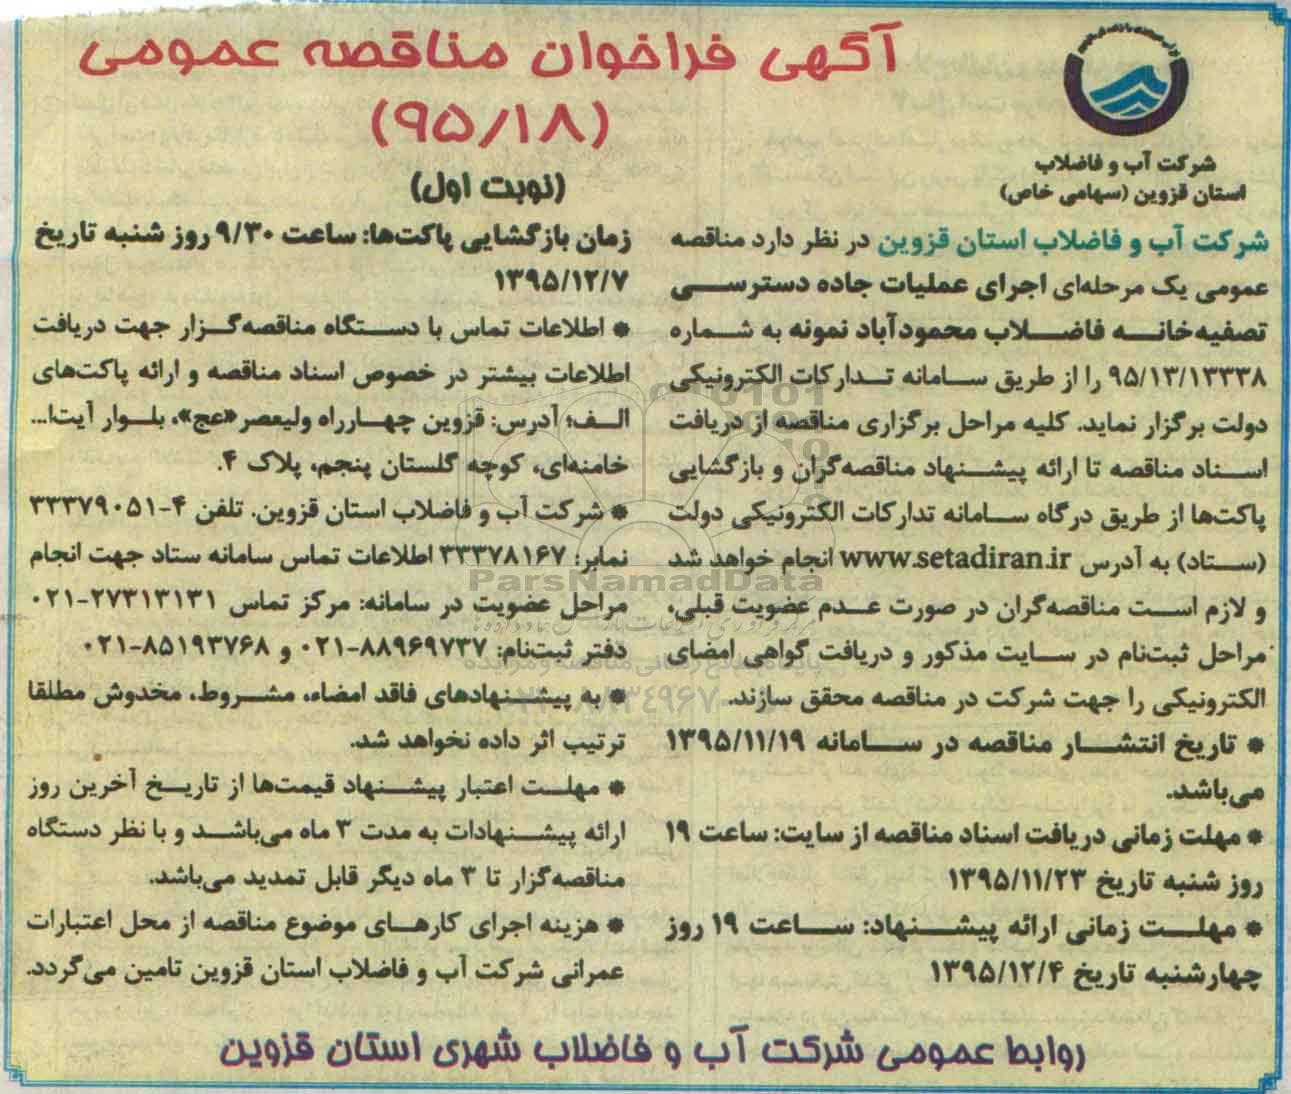 آگهی فراخوان مناقصه عمومی
(۹۵/۱۸)
(نوبت اول)
شرکت آب و فاضلاب
استان قزوین (سهامی خاص)
شرکت آب و فاضلاب استان قزوین در نظر دارد مناقصه
عمومی یک مرحله‌ای اجرای عملیات جاده دسترسی
تصفیه‌خانه فاضلاب محمودآباد نمونه به شماره
۹۵/۱۳/۱۳۳۳۸ را از طریق سامانه تدارکات الکترونیکی
دولت برگزار نماید. کلیه مراحل برگزاری مناقصه از دریافت
اسناد مناقصه تا ارائه پیشنهاد مناقصه‌گران و بازگشایی
پاکت‌ها از طریق درگاه سامانه تدارکات الکترونیکی دولت
(ستاد) به آدرس www.setadiran.ir انجام خواهد شد
و لازم است مناقصه‌گران در صورت عدم عضویت قبلی،
مراحل ثبت‌نام در سایت مذکور و دریافت گواهی امضای
الکترونیکی را جهت شرکت در مناقصه محقق سازند.
* تاریخ انتشار مناقصه در سامانه ۱۳۹۵/۱۱/۱۹
می‌باشد.
* مهلت زمانی دریافت اسناد مناقصه از سایت: ساعت ۱۹
روز شنبه تاریخ ۱۳۹۵/۱۱/۲۳
* مهلت زمانی ارائه پیشنهاد: ساعت ۱۹ روز
چهارشنبه تاریخ ۱۳۹۵/۱۲/۴
زمان بازگشایی پاکت‌ها: ساعت ۹/۳۰ روز شنبه تاریخ
۱۳۹۵/۱۲/۷
* اطلاعات تماس با دستگاه مناقصه‌گزار جهت دریافت
اطلاعات بیشتر در خصوص اسناد مناقصه و ارائه پاکت‌های
الف؛ آدرس: قزوین چهارراه ولیعصر «عج»، بلوار آیت‌ا...
خامنه‌ای، کوچه گلستان پنجم، پلاک ۴.
* شرکت آب و فاضلاب استان قزوین. تلفن ۴-۳۳۳۷۹۰۵۱
نمابر: ۳۳۳۷۸۱۶۷ اطلاعات تماس سامانه ستاد جهت انجام
مراحل عضویت در سامانه: مرکز تماس ۲۷۳۱۳۱۳۱-۰۲۱
دفتر ثبت‌نام: ۸۸۹۶۹۷۳۷-۰۲۱ و ۸۵۱۹۳۷۶۸-۰۲۱
* به پیشنهادهای فاقد امضاء، مشروط، مخدوش مطلقا
ترتیب اثر داده نخواهد شد.
* مهلت اعتبار پیشنهاد قیمت‌ها از تاریخ آخرین روز
ارائه پیشنهادات به مدت ۳ ماه می‌باشد و با نظر دستگاه
مناقصه‌گزار تا ۳ ماه دیگر قابل تمدید می‌باشد.
* هزینه اجرای کارهای موضوع مناقصه از محل اعتبارات
عمرانی شرکت آب و فاضلاب استان قزوین تامین می‌گردد.
روابط عمومی شرکت آب و فاضلاب شهری استان قزوین
ParsNamadData